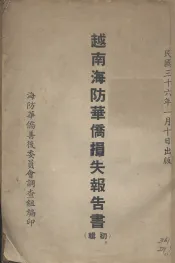 民國三十六年一月十日出版
越南海防華僑損失報告書
(初編)
海防華僑善後委員會調查組編印